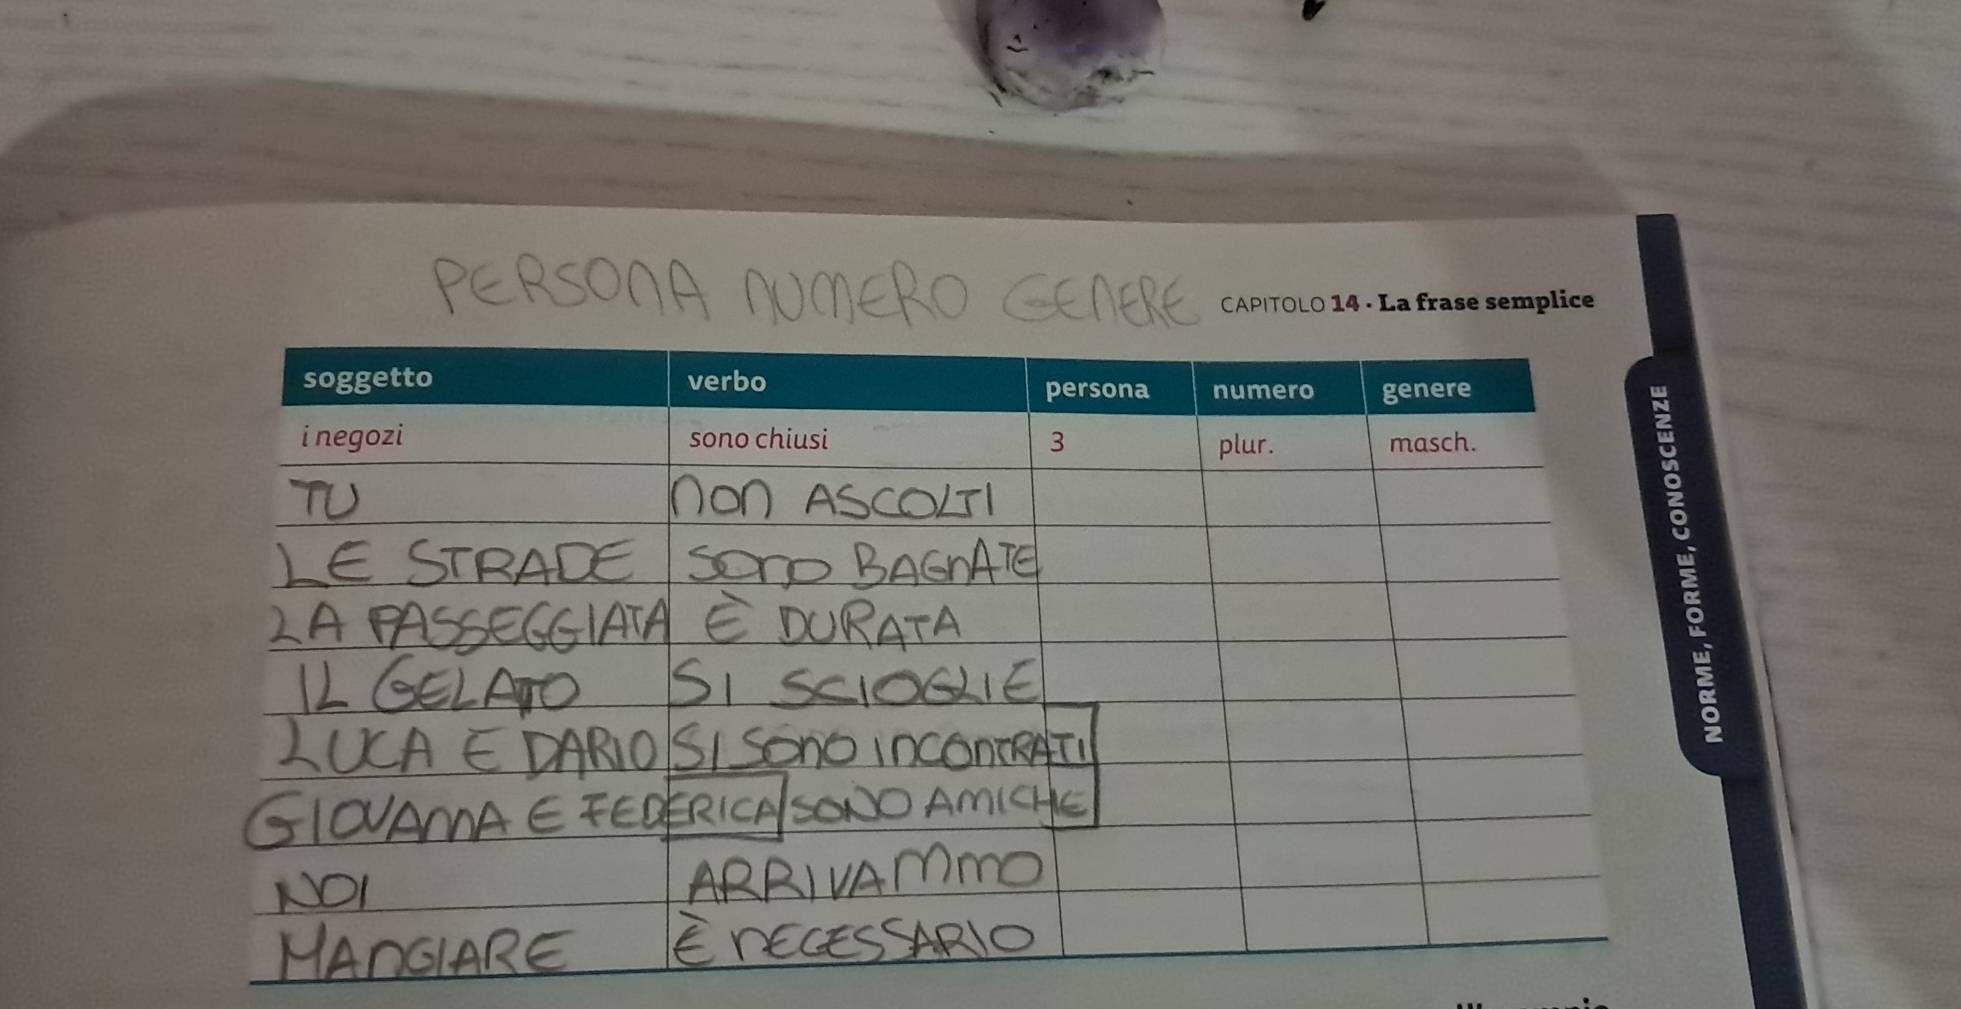 PERSONA NUMERO GENERE
CAPITOLO 14 · La frase semplice
soggetto verbo persona numero genere
i negozi sono chiusi 3 plur. masch.
TU NON ASCOLTI
LE STRADE SONO BAGNATE
LA PASSEGGIATA È DURATA
IL GELATO SI SCIOGLIE
LUCA E DARIO SI SONO INCONTRATI
GIOVANNA E FEDERICA SONO AMICHE
NOI ARRIVAMMO
MANGIARE È NECESSARIO
NORME, FORME, CONOSCENZE